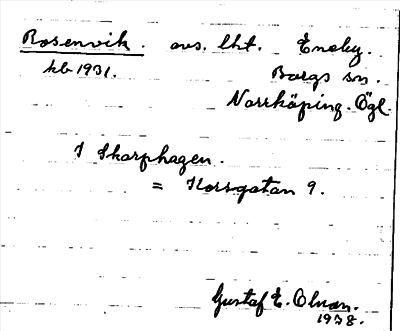 Rosenvik. avs. lht. Eneby.
kb 1931. Borgs sn.
Norrköping. Ögl.
I Skarphagen.
= Korsgatan 9.
Gustaf E.
1938.